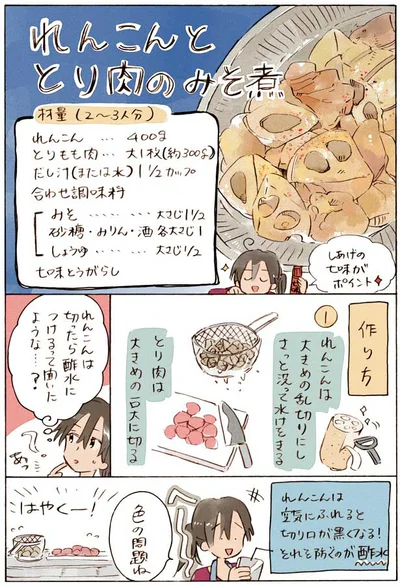 れんこんと
とり肉のみそ煮
材量(2〜3人分)
れんこん … 400g
とりもも肉… 大1枚(約300g)
だし汁(または水) 1 1/2カップ
合わせ調味料
みそ ………… 大さじ1 1/2
砂糖・みりん・酒 各大さじ1
しょうゆ …… 大さじ1/2
七味とうがらし
しあげの
七味が
ポイント
作り方
①
れんこんは
大きめの乱切りにし
さっと洗って水けをきる
とり肉は
大きめの一口大に切る
れんこんは
切ったら酢水に
つけるって聞いた
ような…?
あっ
れんこんは
空気にふれると
切り口が黒くなる!
それを防ぐのが酢水
色の問題ね
はやくー!